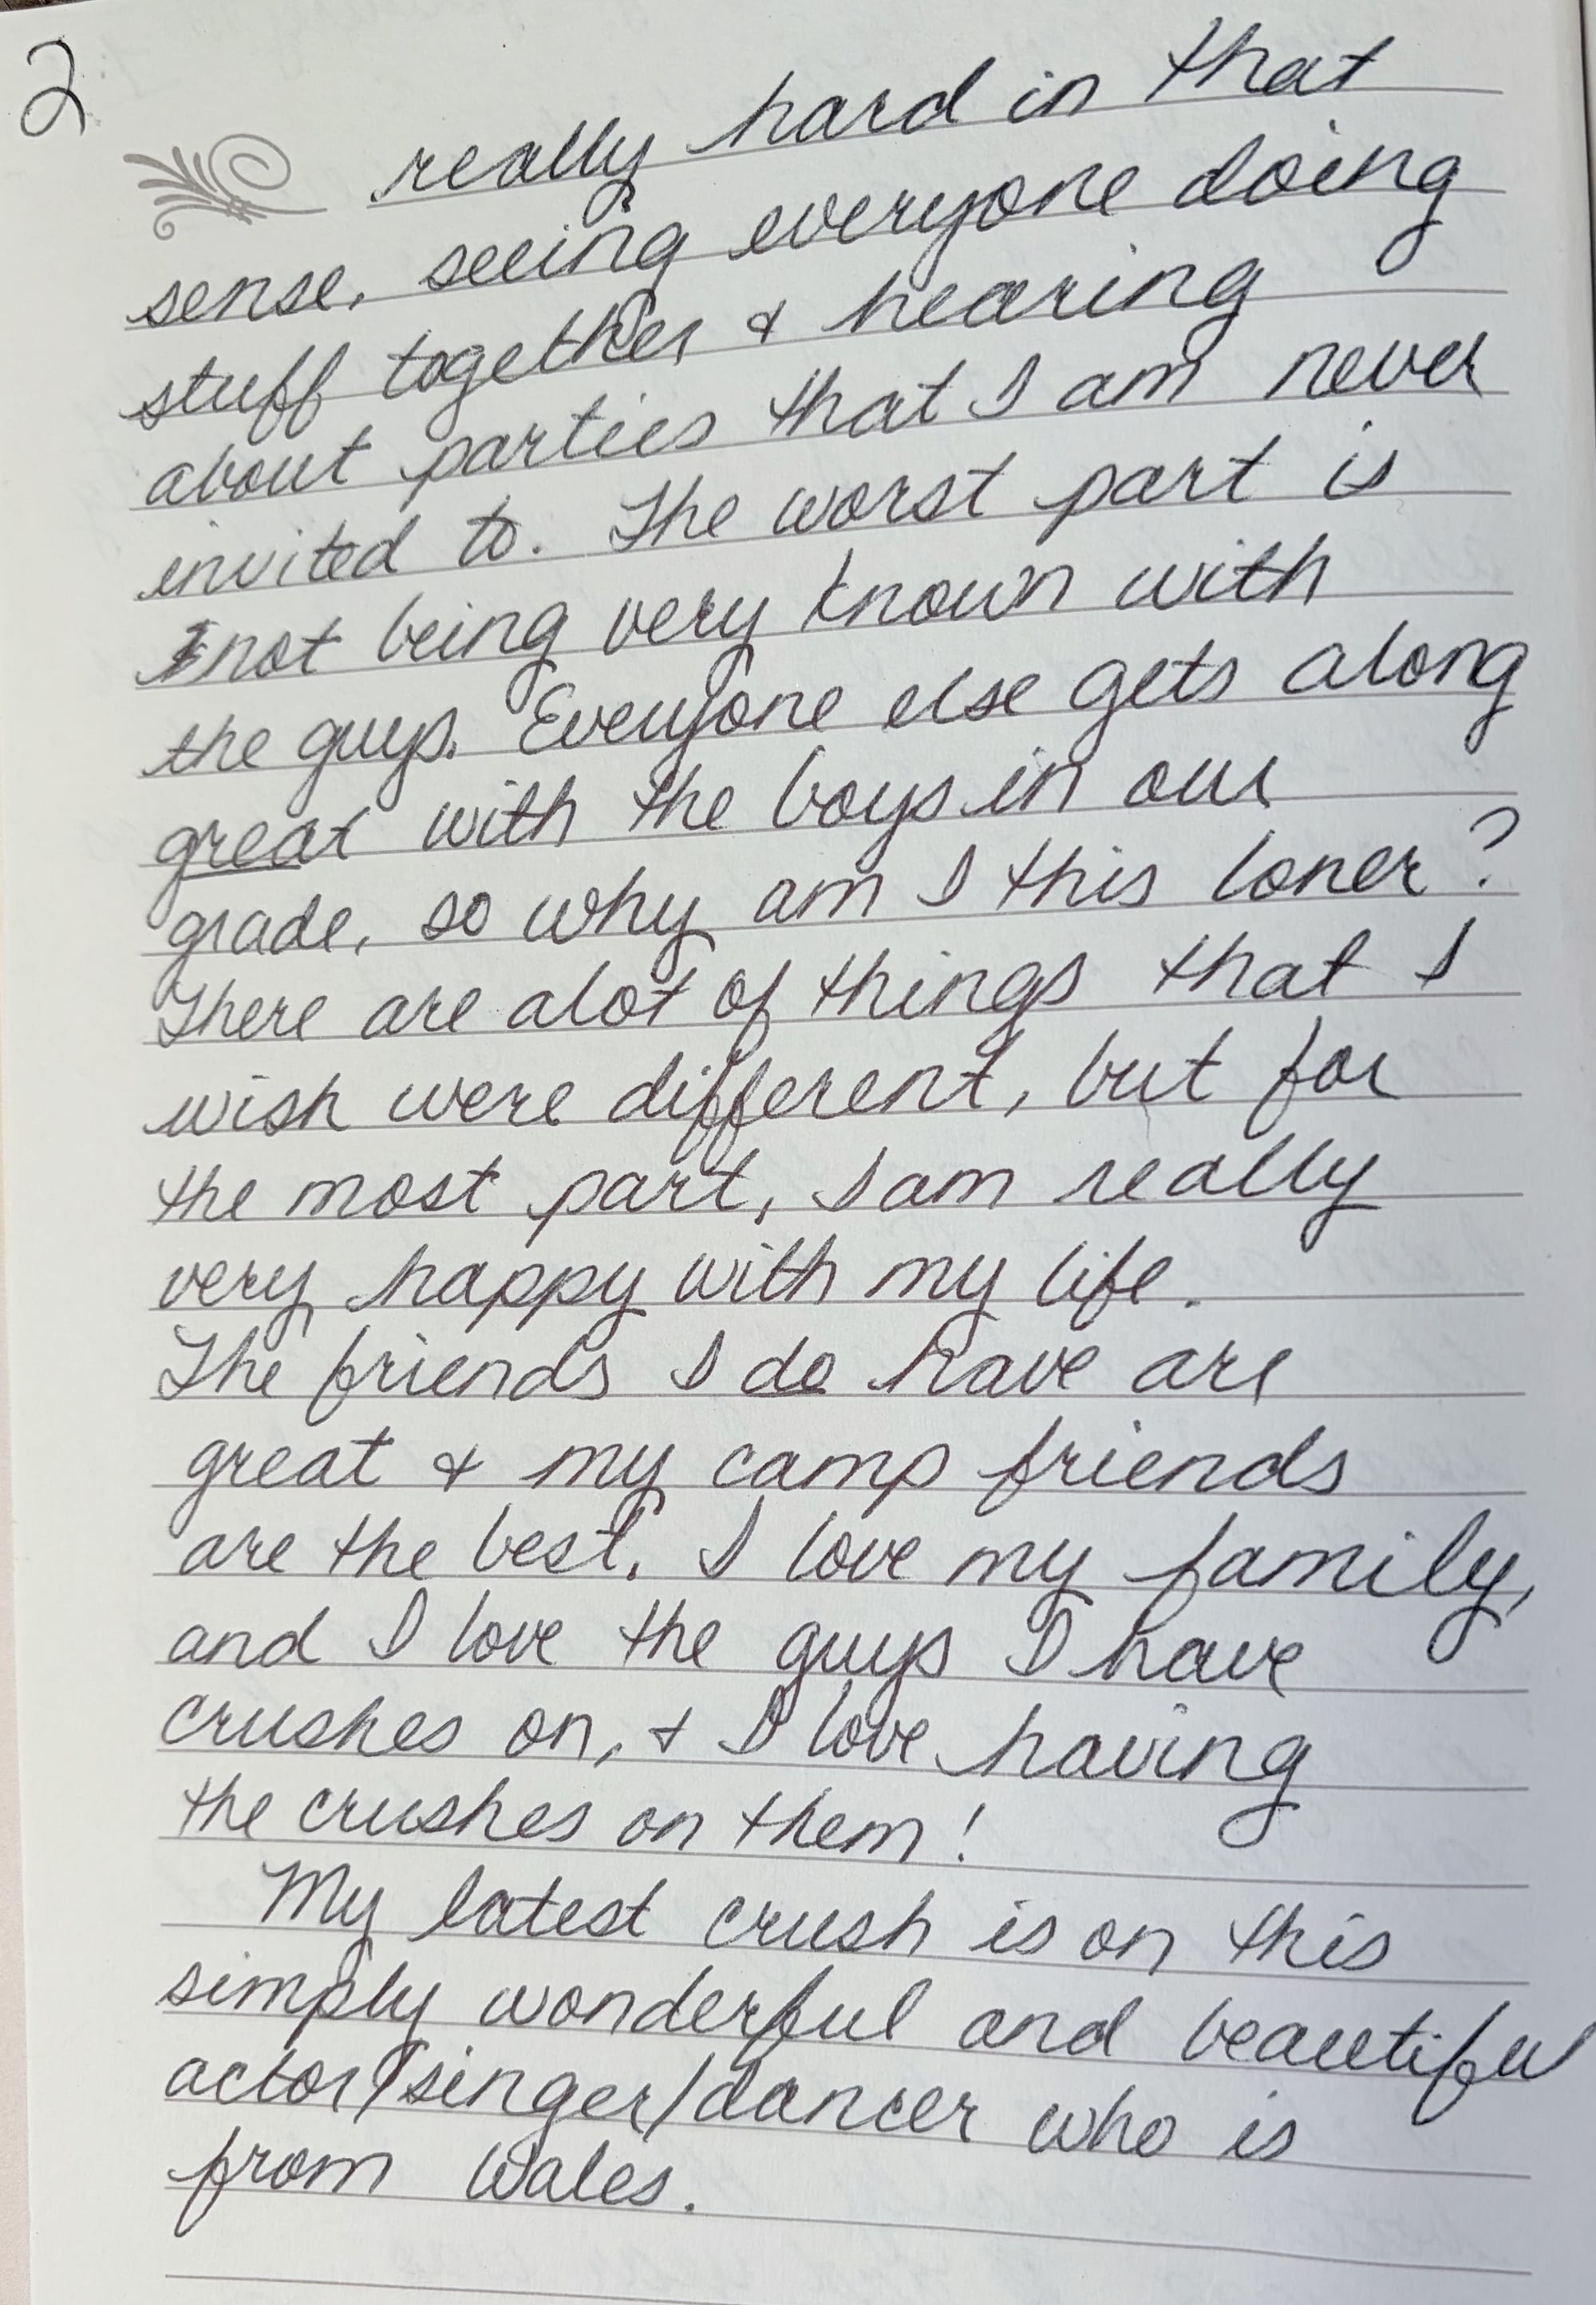 2
really hard in that
sense, seeing everyone doing
stuff together & hearing
about parties that I am never
invited to. The worst part is
not being very known with
the guys. Everyone else gets along
great with the boys in our
grade, so why am I this loner?
There are alot of things that I
wish were different, but for
the most part, I am really
very happy with my life.
The friends I do have are
great & my camp friends
are the best. I love my family,
and I love the guys I have
crushes on, & I love having
the crushes on them!
My latest crush is on this
simply wonderful and beautiful
actor/singer/dancer who is
from Wales.